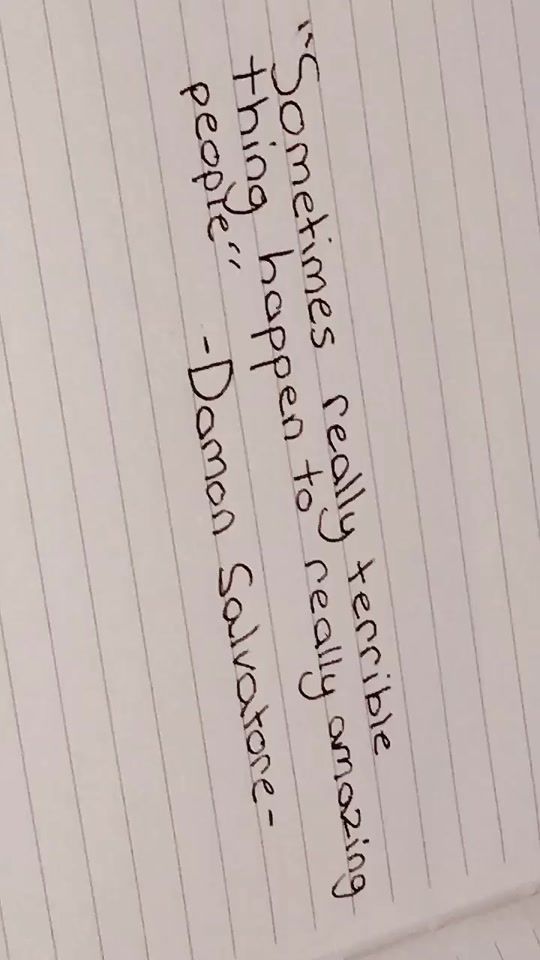 "Sometimes really terrible
thing happen to really amazing
people"
-Damon Salvatore-